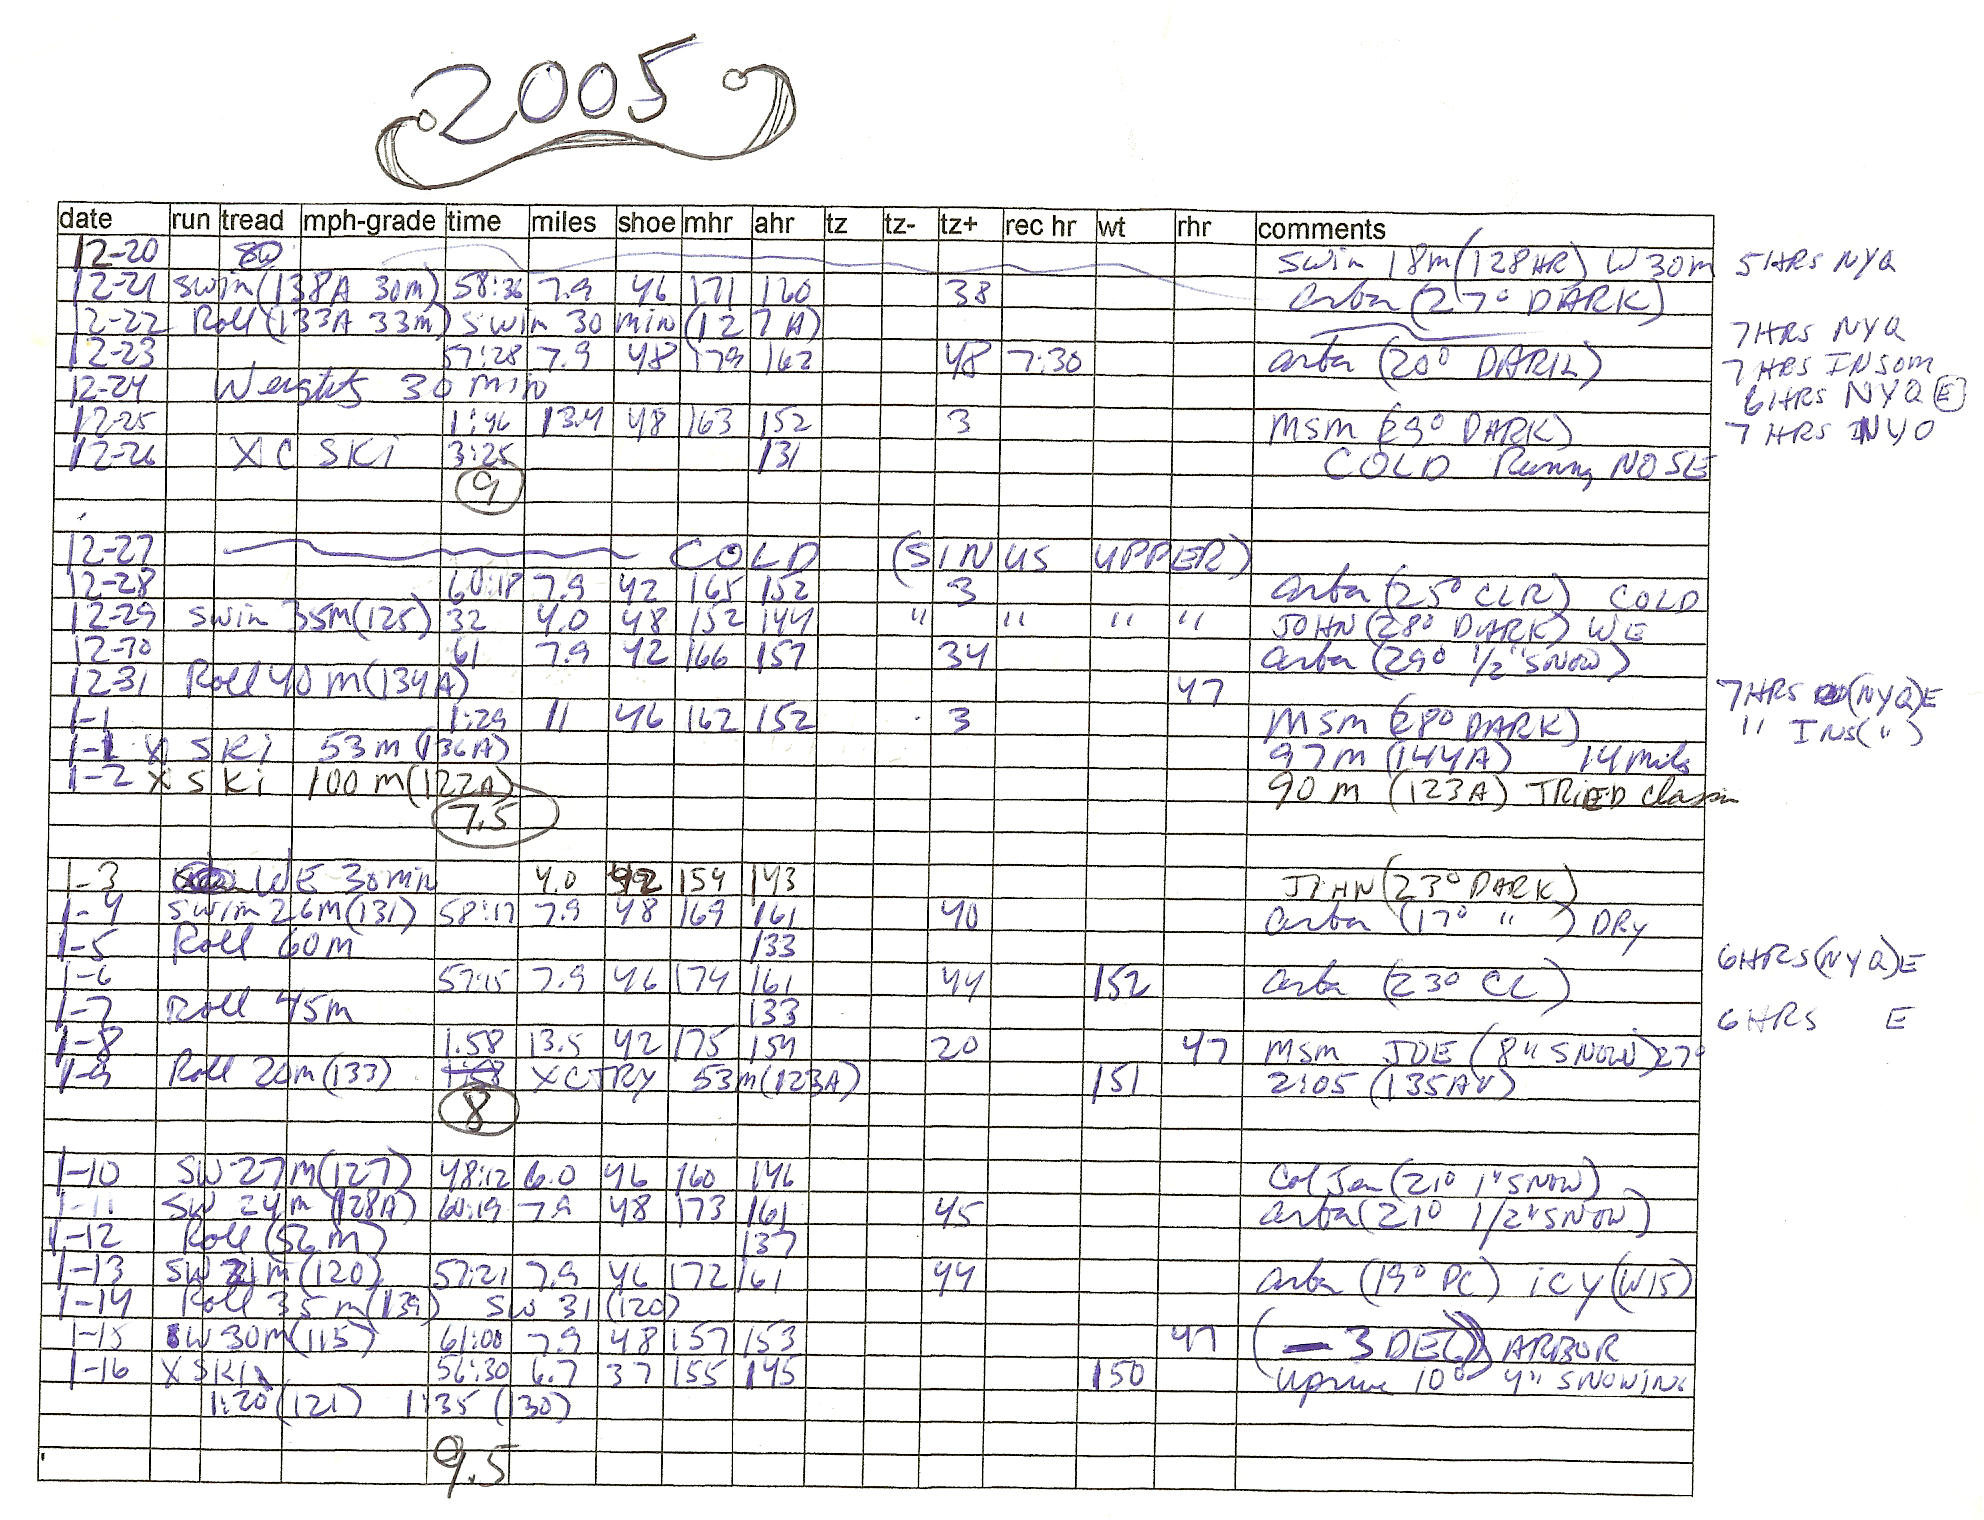 2005
date run tread mph-grade time miles shoe mhr ahr tz tz- tz+ rec hr wt rhr comments
12-20 Swim 18m (128HR) W 30m 5HRS NYQ
12-21 Swim (138A 30m) 58:36 7.9 46 171 160 38 arbor (27° DARK)
12-22 Roll (133A 33m) Swim 30 min (127A) 7HRS NYQ
12-23 57:28 7.9 48 179 162 48 7:30 arbor (20° DARK) 7HRS INSOM
12-24 Weights 30 min 6HRS NYQ E
12-25 1:46 13.4 48 163 152 3 MSM (29° DARK) 7 HRS NYQ
12-26 XC SKi 3:25 131 COLD Running NOSE
9
12-27 COLD (SINUS UPPER)
12-28 60:18 7.9 42 165 152 3 arbor (25° CLR) COLD
12-29 Swim 35m (125) 32 4.0 48 152 144 " " " " JOHN (28° DARK) WE
12-30 61 7.9 42 166 157 34 arbor (29° 1/2" SNOW)
12-31 Roll 40m (134A) 47 7HRS (NYQ)E
1-1 1:29 11 46 162 152 3 MSM (28° DARK) " INS(")
1-1 X SKi 53m (136A) 97m (144A) 14 Miles
1-2 X SKi 100m (122A) 90m (123A) TRIED Classic
7.5
1-3 WE 30 min 4.0 42 154 143 JOHN (23° DARK)
1-4 Swim 26m (131) 58:17 7.9 48 169 161 40 arbor (17° ") DRY
1-5 Roll 60m 133 6HRS (NYQ)E
1-6 57:15 7.9 46 174 161 44 152 arbor (23° CL)
1-7 Roll 45m 133 6HRS E
1-8 1:58 13.5 42 175 154 20 47 MSM JOE (8" SNOW) 27°
1-9 Roll 20m (133) 1:58 XCTRY 53m (123A) 151 2:05 (135AV)
8
1-10 SW 27m (127) 48:12 6.0 46 160 146 (21° 1" SNOW)
1-11 SW 24m (128A) 60:19 7.9 48 173 161 45 arbor (21° 1/2" SNOW)
1-12 Roll (56m) 137
1-13 SW m (120) 57:21 7.9 46 172 161 44 arbor (19° PC) ICY (W15)
1-14 Roll 35m (139) SW 31 (120)
1-15 SW 30m (115) 61:00 7.9 48 157 153 47 (-3 DEG) ARBOR
1-16 X SKi 56:30 6.7 37 155 145 150 10° 4" SNOWING
1:20 (121) 1:35 (130)
9.5